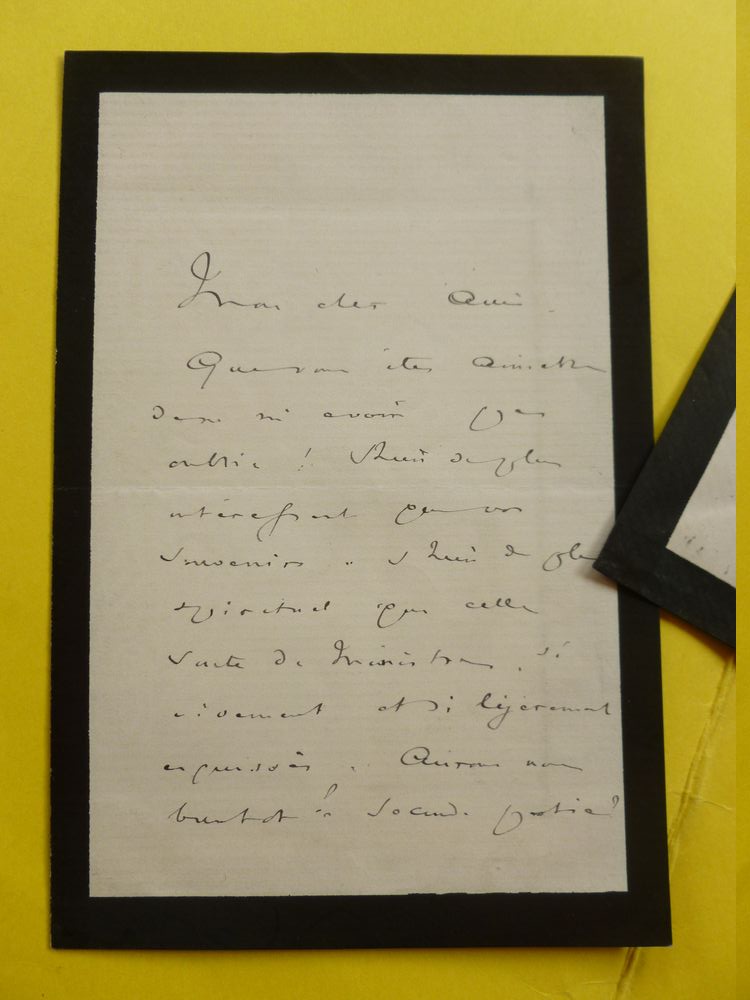 Mon cher Ami
Que vous êtes aimable
de ne m'avoir pas
oublié ! Rien de plus
intéressant que vos
souvenirs . Rien de plus
spirituel que cette
suite de Ministres, si
vivement et si légèrement
esquissés . Aurons nous
bientôt la seconde partie ?